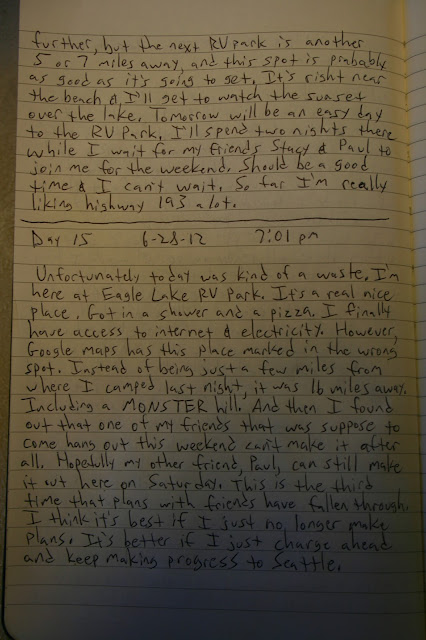 further, but the next RV park is another
5 or 7 miles away, and this spot is probably
as good as it's going to get. It's right near
the beach & I'll get to watch the sunset
over the lake. Tomorrow will be an easy day
to the RV Park. I'll spend two nights there
while I wait for my friends Stacy & Paul to
join me for the weekend. Should be a good
time & I can't wait. So far I'm really
liking highway 193 alot.
Day 15 6-28-12 7:01 pm
Unfortunately today was kind of a waste. I'm
here at Eagle Lake RV Park. It's a real nice
place. Got in a shower and a pizza. I finally
have access to internet & electricity. However,
Google maps has this place marked in the wrong
spot. Instead of being just a few miles from
where I camped last night, it was 16 miles away.
Including a MONSTER hill. And then I found
out that one of my friends that was suppose to
come hang out this weekend can't make it after
all. Hopefully my other friend, Paul, can still make
it out here on Saturday. This is the third
time that plans with friends have fallen through.
I think it's best if I just no longer make
plans. It's better if I just charge ahead
and keep making progress to Seattle.